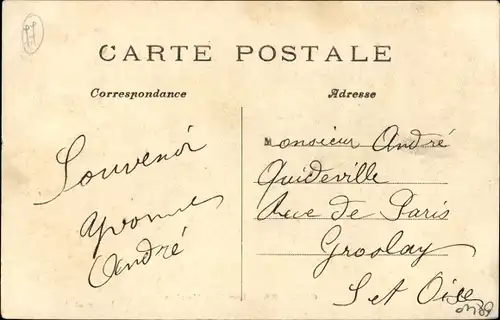 CARTE POSTALE
Correspondance
Adresse
Souvenir
Yvonne
André
Monsieur André
Quideville
Rue de Paris
Groslay
S et Oise